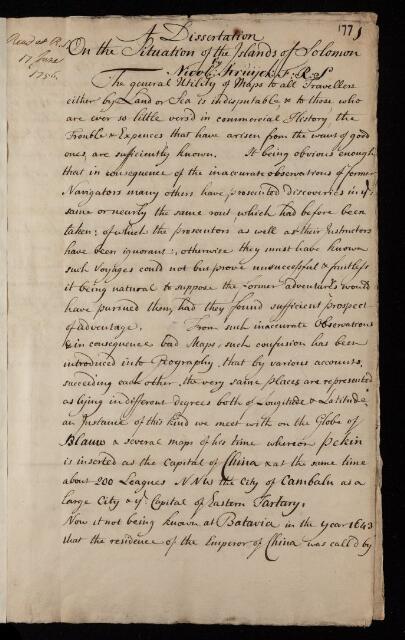 177
Read at R.S.
17 June
1756.
A Dissertation
On the Situation of the Islands of Solomon
by
Nicol: Struyck F. R. S
The general Utility of Maps to all Travellers
either by Land or Sea is indisputable & to those who
are ever so little vers'd in commercial History the
Trouble & Expences that have arisen from the want of good
ones are sufficiently known. It being obvious enough
that in consequence of the inaccurate observations of former
Navigators many others have prosecuted discoveries in ye
same or nearly the same rout which had before been
taken; of which the prosecutors as well as their Instructors
have been ignorant, otherwise they must have known
such Voyages could not but prove unsuccessful & fruitless
it being natural to suppose the former adventurers would
have pursued them, had they found sufficient prospect
of advantage. From such inaccurate Observations
& in consequence bad Maps, such confusion has been
introduced into Geography, that by various accounts
succeeding each other, the very same places are represented
as lying in different degrees both of Longitude & Latitude,
an Instance of this kind we meet with on the Globe of
Blauw & several maps of his time whereon Pekin
is inserted as the Capital of China & at the same time
about 200 Leagues NNW the City of Cambalu as a
large City & ye Capital of Eastern Tartary.
Now it not being known at Batavia in the year 1643
that the residence of the Emperor of China was call'd by